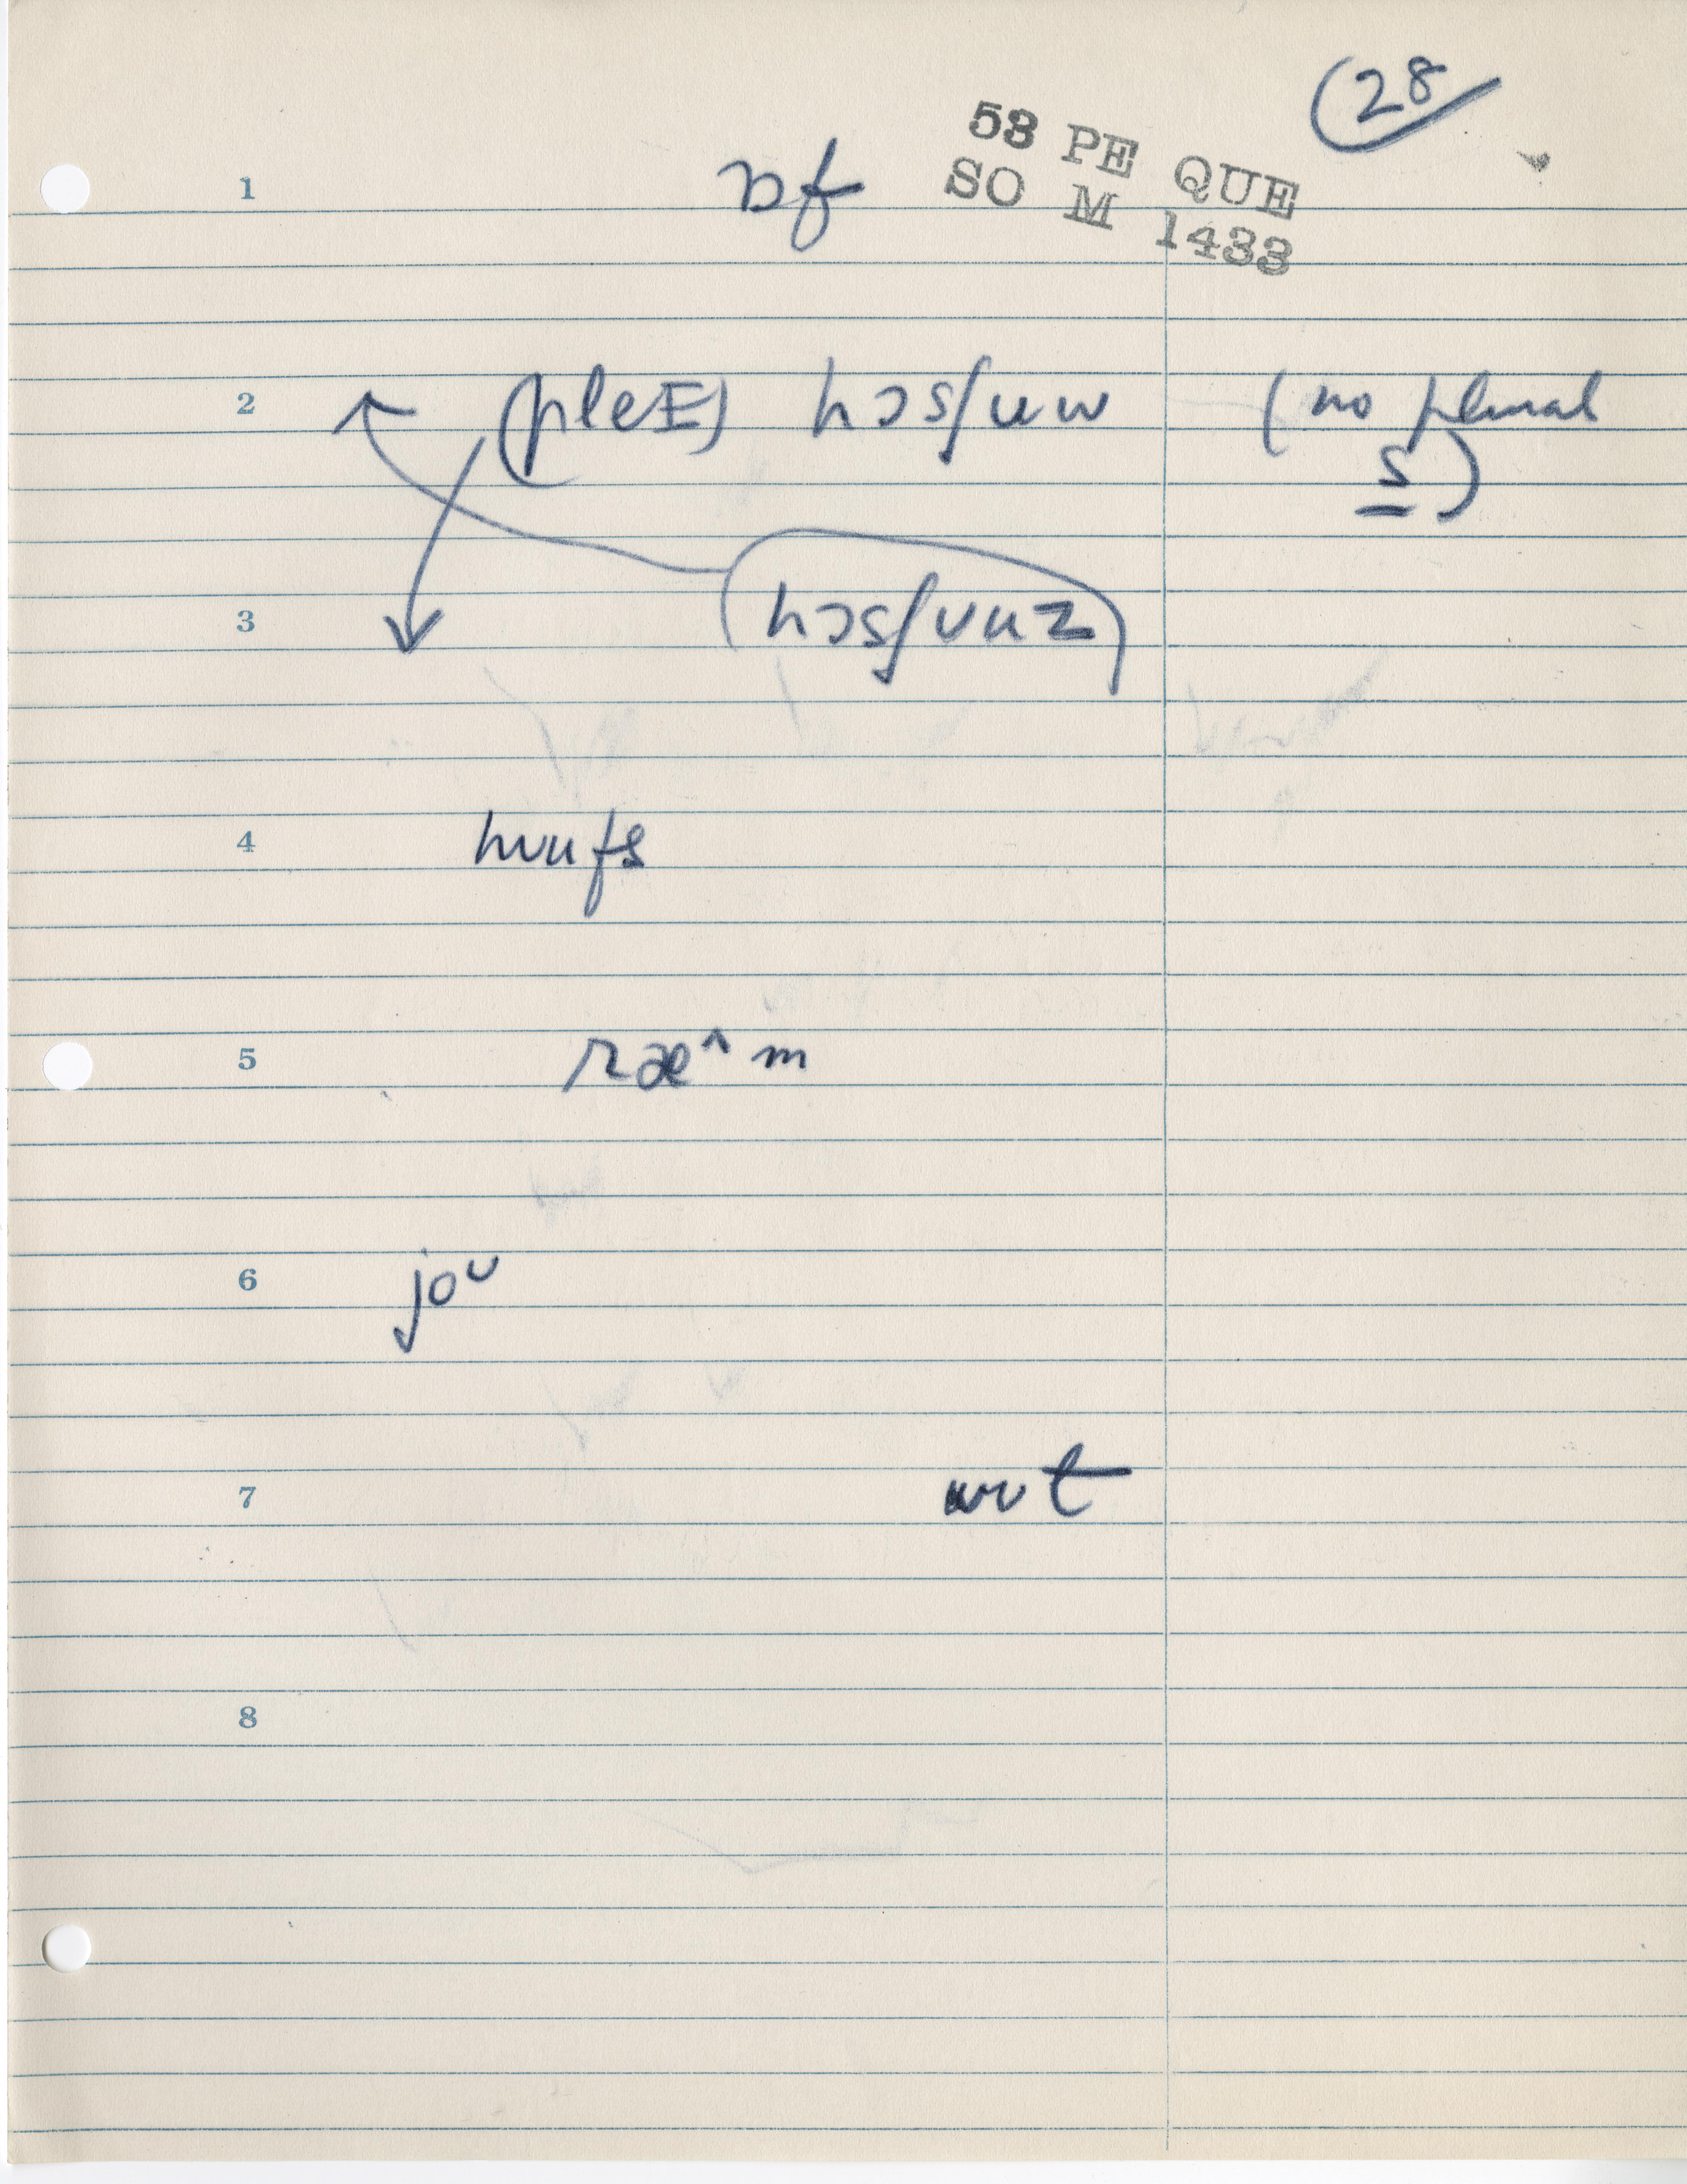 28
53 PE QUE
SO M 1433
1
2 (pleI) hɔsʃuw (no plural
s)
3 hɔsʃuuz
4 hʊufs
5 ræ^m
6 joᴜ
7 wʊt
8